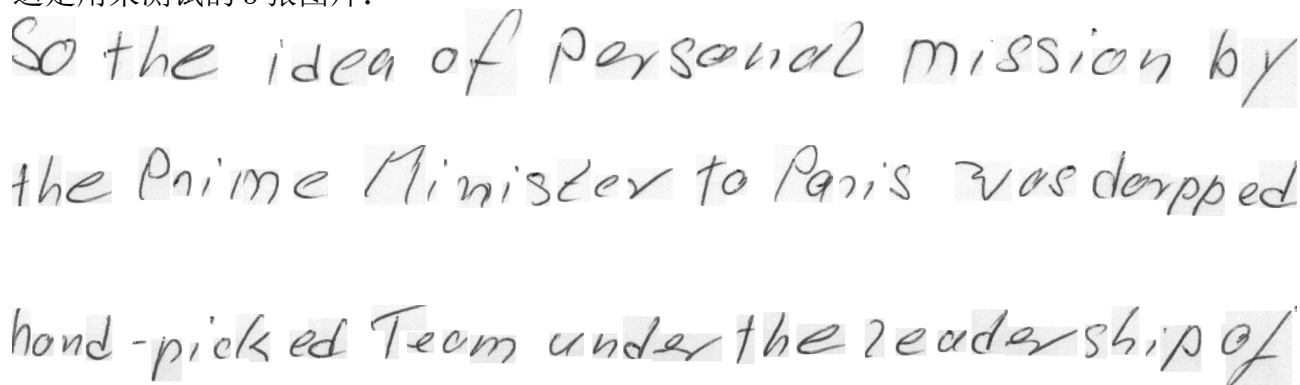 这是用来测试的 3 张图片:
So the idea of personal mission by
the Prime Minister to Paris was dorpped
hand-picked Team under the leadership of